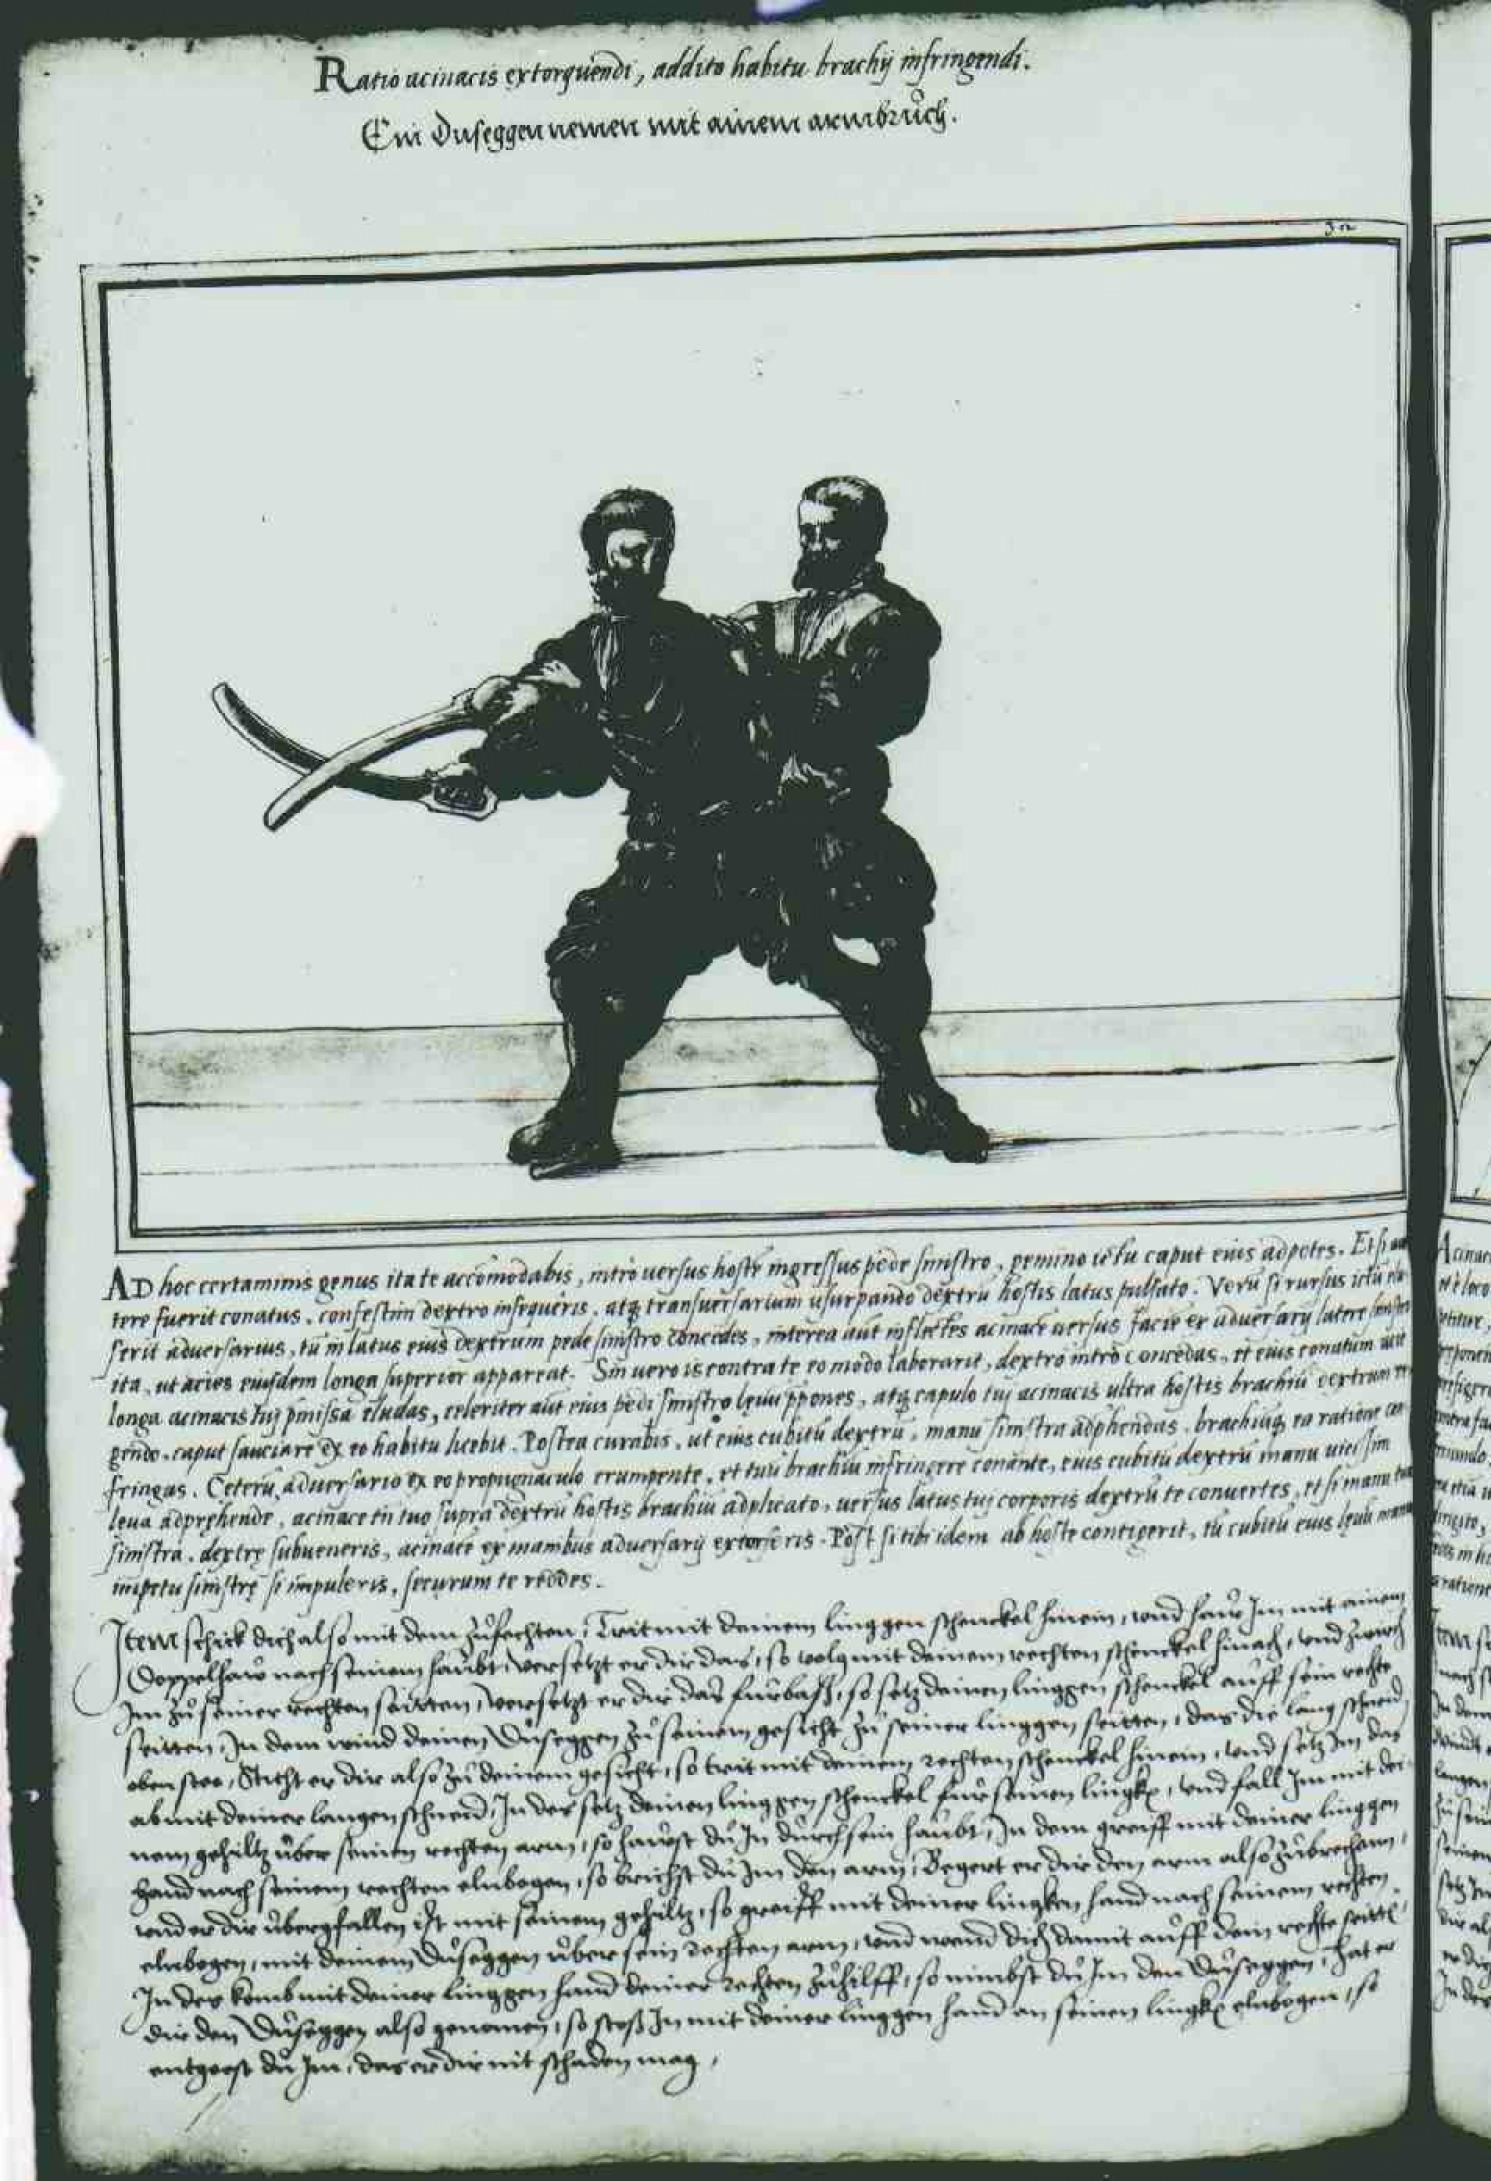 Ratio acinacis extorquendi, addito habitu brachij infringendi.
Ein Duseggen nemen mit ainem armbruch.
32
AD hoc certaminis genus ita te accomodabis, intro versus hostē ingressus pede sinistro, gemino ictu caput eius adpetes. Et si
tere fuerit conatus, confestim dextro insequeris, atq; transversarium usurpando dextrū hostis latus pulsato. Verū si rursus ictū
serit adversarius, tū in latus eius dextrum pede sinistro concedes, interea aūt inflectes acinacē versus faciē ex adversarij latere sinistro
ita, ut acies eiusdem longa superior appareat. Sin vero is contra te eo modo laborarit, dextro intro concedas, et eius conatum
longa acinacis tuj pmissa eludas, celeriter aūt eius pedi sinistro levū ppones, atq; capulo tuj acinacis ultra hostis brachiū dextrum
gendo, caput sauciare ex eo habitu licebit. Postea curabis, ut eius cubitū dextrū, manu sinistra adphendas, brachiūq; ea ratione
fringas. Ceterū adversario ex eo propugnaculo erumpente, et tuū brachiū infringere conante, eius cubitū dextrū manu vicissim
leva adprehende, acinace tū tuo supra dextrū hostis brachiū adplicato, versus latus tuj corporis dextrū te convertes, et si manu tua
sinistra, dextrę subveneris, acinacē ex manibus adversarij extorseris. Post si tibi idem ab hoste contigerit, tū cubitū eius levū manus
impetu sinistrę si impuleris, securum te reddes.
Item schick dich also mit dem zufechten, Trit mit deinem linggen schenckel hinein, und haw Im mit ainem
Doppelhaw nach seinem haubt, versetzt er dir das, so volg mit deinem rechten schenckel hinach, und zwirch
Im zu seiner rechten seitten, versetzt er dir das furbaß, so setz deinen linggen schenckel auff sein rechte
seitten, In dem wind deinen Duseggen zu seinem gesicht zu seiner linggen seitten, das die lang schneid
oben stee, Sticht er dir also zu deinem gesicht, so trit mit deinem rechten schenckel hinein, und setz Im das
ab mit deiner langen schneid, In des setz deinen linggen schenckel für seinen lingkn, und fall Im mit dei
nem gehiltz über seinen rechten arm, so hawst du In durch sein haubt, In dem greiff mit deiner linggen
hand nach seinem rechten elnbogen, so brichst du Im den arm, Begert er dir den arm also zubrechenn,
und er dir übergfallen ist mit seinem gehiltz, so greiff mit deiner lingken hand nach seinem rechten
elnbogen, mit deinem Duseggen über sein rechten arm, und wend dich damit auff dein rechte seitten,
In des komb mit deiner linggen hand deiner rechten zuhilff, so nimbst du Im den Duseggen, hat er
dir den Duseggen also genomen, so stoß In mit deiner linggen hand an seinen lingkn elnbogen, so
entgeest du Im, das er dir nit schaden mag,